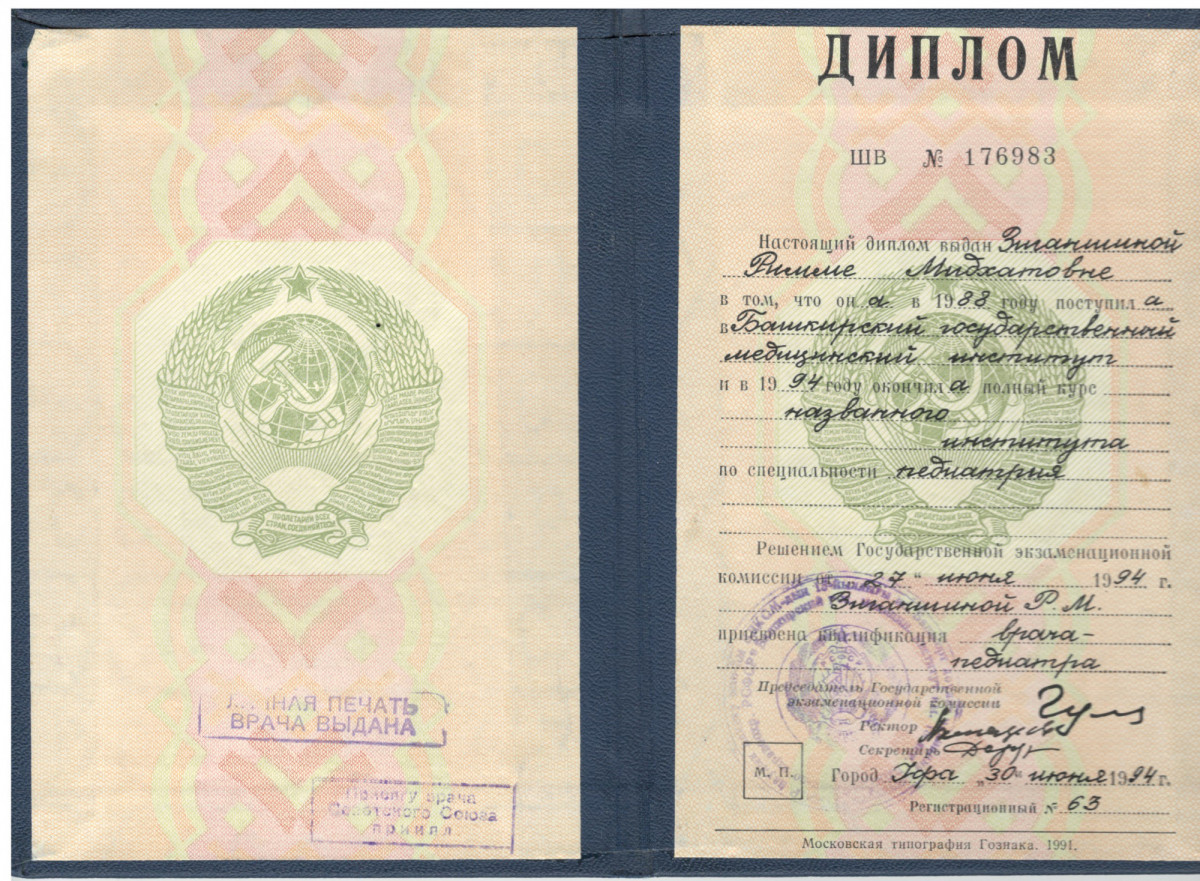 ПРОЛЕТАРИИ ВСЕХ
СТРАН, СОЕДИНЯЙТЕСЬ!
ЛИЧНАЯ ПЕЧАТЬ
ВРАЧА ВЫДАНА
Присягу врача
Советского Союза
принял
ДИПЛОМ
ШВ № 176983
Настоящий диплом выдан Зиганшиной
Римме Мидхатовне
в том, что он а в 1988 году поступил а
в Башкирский государственный
медицинский институт
и в 1994 году окончил а полный курс
названного
института
по специальности педиатрия
Решением Государственной экзаменационной
комиссии от 27 " июня 1994 г.
Зиганшиной Р. М.
присвоена квалификация врача-
педиатра
Председатель Государственной
экзаменационной комиссии
Ректор
Секретарь
М. П.
Город Уфа „30" июня 1994 г.
Регистрационный № 63
Московская типография Гознака. 1991.